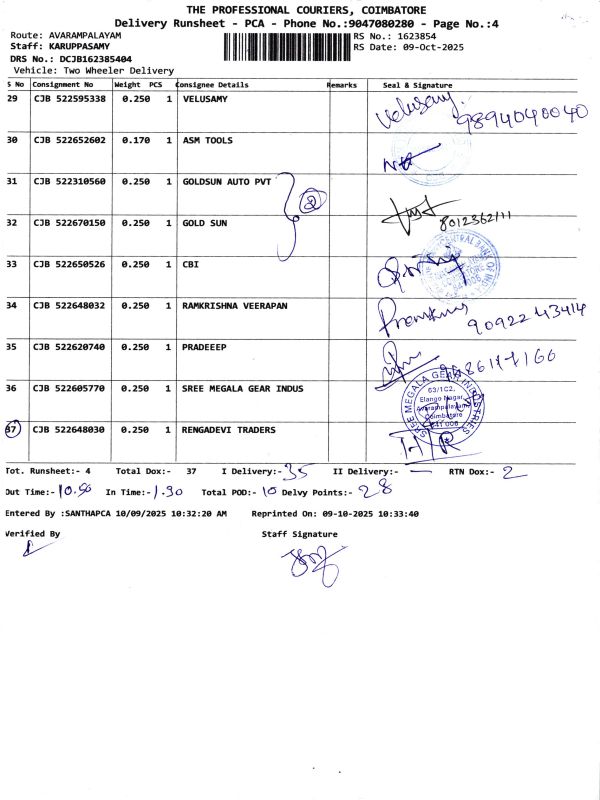 THE PROFESSIONAL COURIERS, COIMBATORE
Delivery Runsheet - PCA - Phone No.:9047080280 - Page No.:4
Route: AVARAMPALAYAM RS No.: 1623854
Staff: KARUPPASAMY RS Date: 09-Oct-2025
DRS No.: DCJB162385404
Vehicle: Two Wheeler Delivery
S No Consignment No Weight PCS Consignee Details Remarks Seal & Signature
29 CJB 522595338 0.250 1 VELUSAMY Velusamy 9894040040
30 CJB 522652602 0.170 1 ASM TOOLS
31 CJB 522310560 0.250 1 GOLDSUN AUTO PVT
32 CJB 522670150 0.250 1 GOLD SUN 8012362111
33 CJB 522650526 0.250 1 CBI CENTRAL BANK OF INDIA
34 CJB 522648032 0.250 1 RAMKRISHNA VEERAPAN 90922 43414
35 CJB 522620740 0.250 1 PRADEEEP
36 CJB 522605770 0.250 1 SREE MEGALA GEAR INDUS
SREE MEGALA GEAR INDUSTRIES
63/1C2,
Elango Nagar,
Avarampalayam
Coimbatore
641 006
37 CJB 522648030 0.250 1 RENGADEVI TRADERS
Tot. Runsheet:- 4 Total Dox:- 37 I Delivery:- 35 II Delivery:- — RTN Dox:- 2
Out Time:- 10.50 In Time:- 1.30 Total POD:- 10 Delvy Points:- 28
Entered By :SANTHAPCA 10/09/2025 10:32:20 AM Reprinted On: 09-10-2025 10:33:40
Verified By Staff Signature